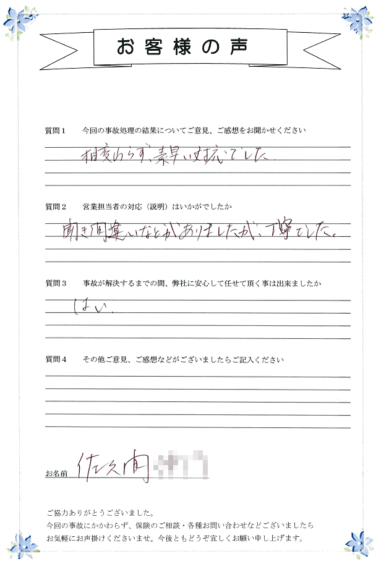 お客様の声
質問1 今回の事故処理の結果についてご意見、ご感想をお聞かせください
相変わらず、素早い対応でした
質問2 営業担当者の対応（説明）はいかがでしたか
聞き間違いなどがありましたが、丁寧でした。
質問3 事故が解決するまでの間、弊社に安心して任せて頂く事は出来ましたか
はい、
質問4 その他ご意見、ご感想などがございましたらご記入ください
お名前 佐久間
ご協力ありがとうございました。
今回の事故にかかわらず、保険のご相談・各種お問い合わせなどございましたら
お気軽にお声掛けくださいませ。今後ともどうぞ宜しくお願い申し上げます。